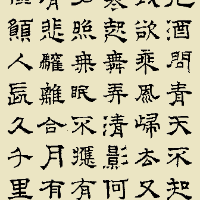 酒問青天不知
欲乘風歸去又
寒起舞弄清影何
照無眠不應有
有悲歡離合月有
願人長久千里